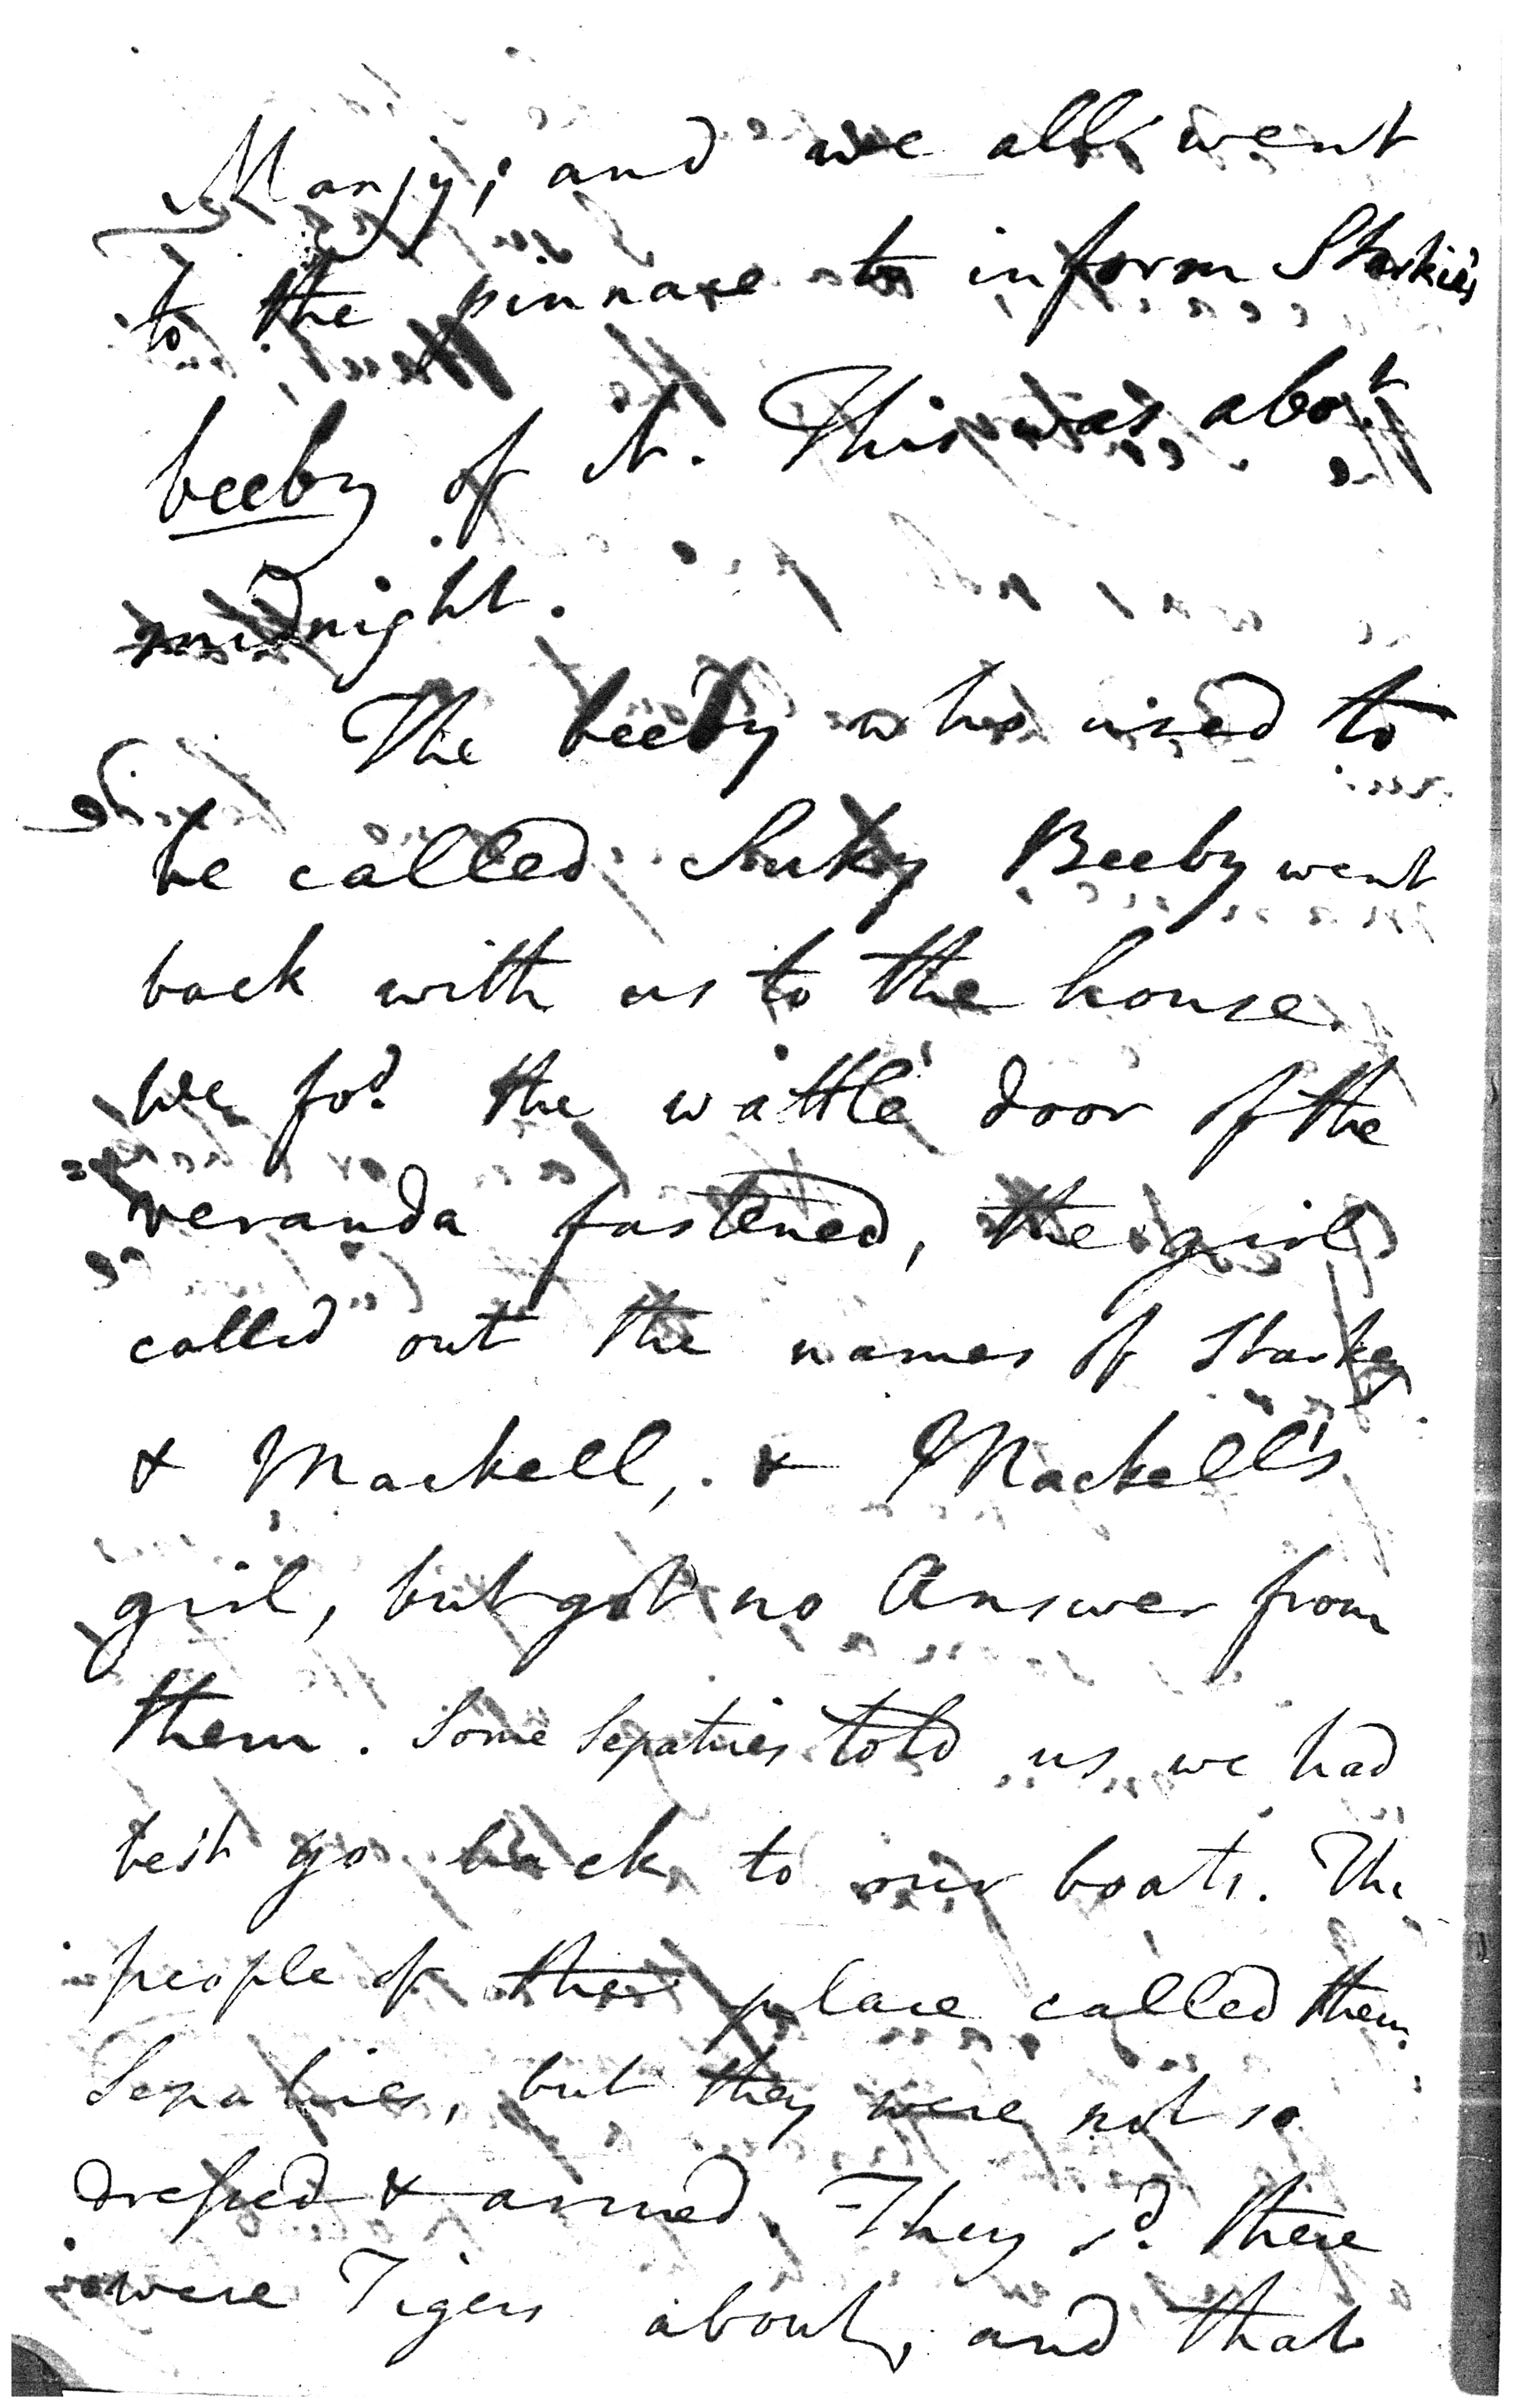 Manjy; and we all went
to the pinnace to inform Starkie's
beeby of it. This was abot
midnight.
The beeby who used to
be called Suky Beeby went
back with us to the house.
We fod. the wattle door of the
veranda fastened, the girl
called out the names of Starkey
& Mackell, & Mackell's
girl, but got no Answer from
them. Some Sepahies told us we had
best go back to our boats. The
people of the place called them
Sepahies, but they were not so
dressed & armed. They sd. there
were Tigers about, and that